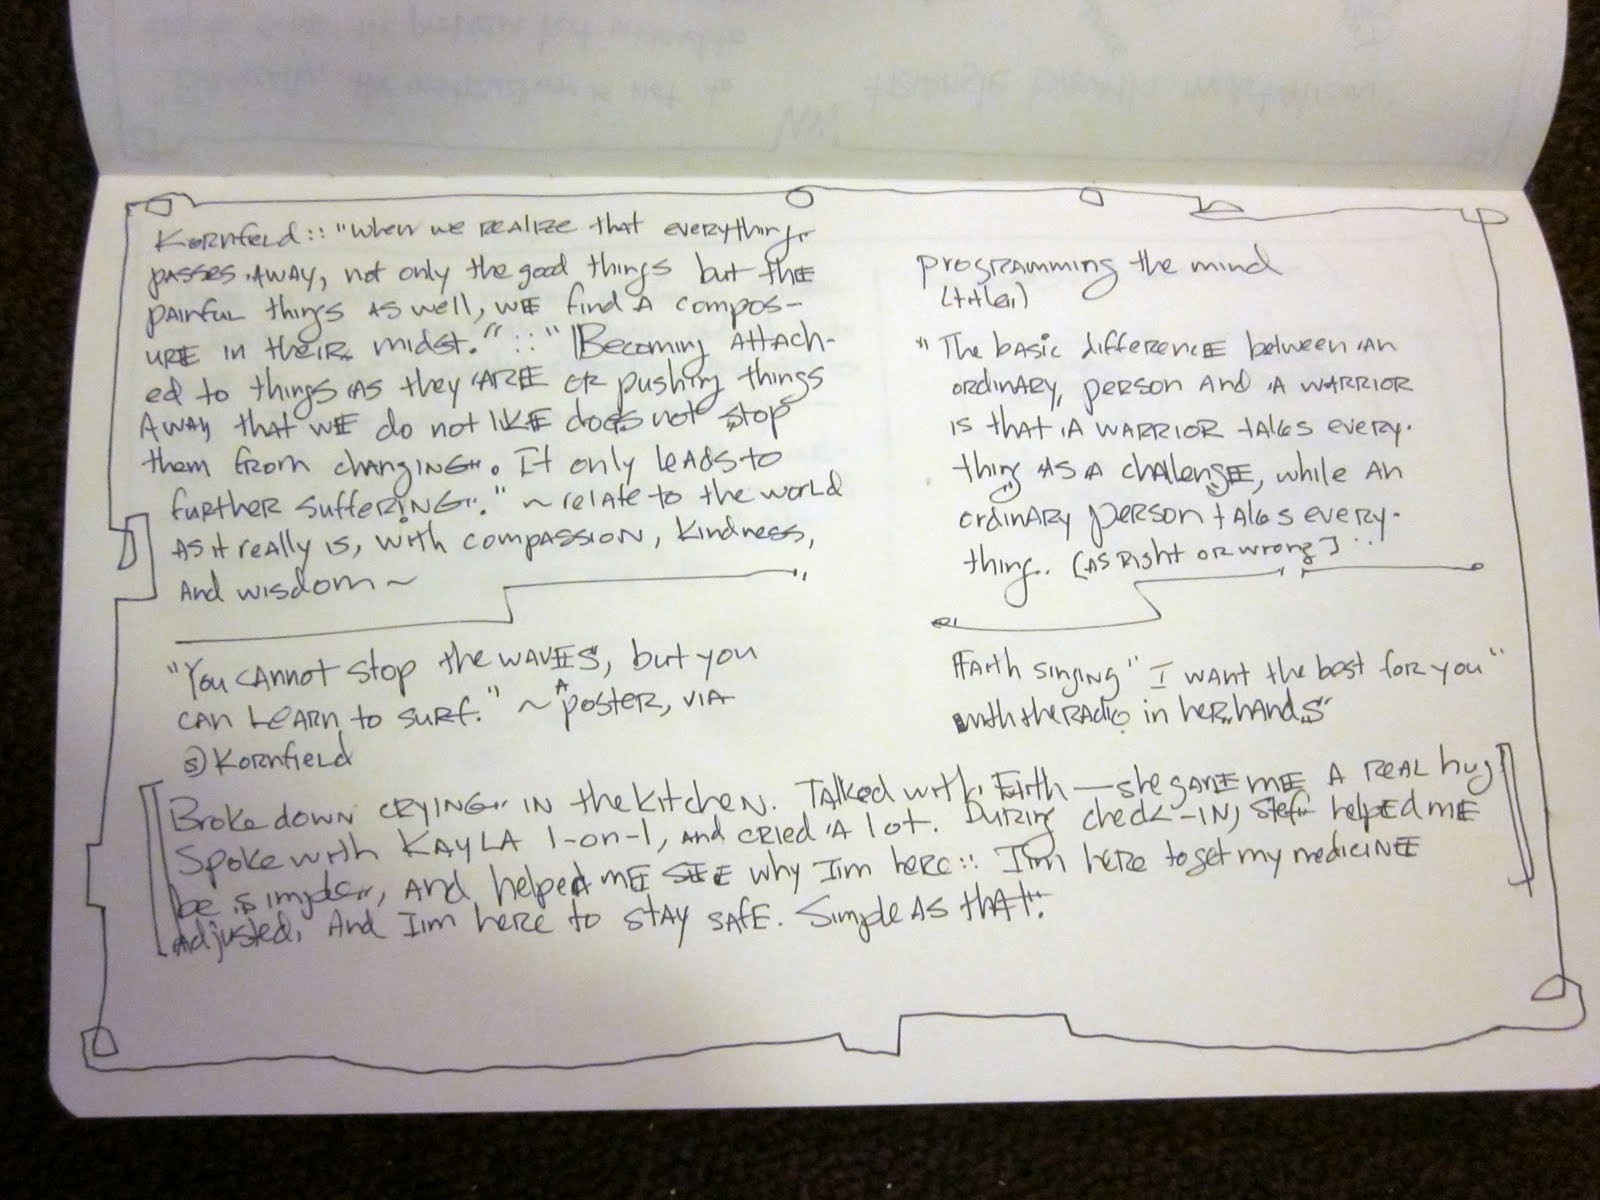 Kornfeld:: "When we realize that everything
passes away, not only the good things but the
painful things as well, we find a compos-
ure in their midst." :: "Becoming attach-
ed to things as they are or pushing things
away that we do not like does not stop
them from changing. It only leads to
further suffering." ~ relate to the world
as it really is, with compassion, kindness,
and wisdom ~
"You cannot stop the waves, but you
can learn to surf." ~ A poster, via
Kornfield
programming the mind
(title)
"The basic difference between an
ordinary person and a warrior
is that a warrior takes every-
thing as a challenge, while an
ordinary person takes every-
thing.. [as right or wrong]
Faith singing "I want the best for you"
with the radio in her hands
Broke down crying in the kitchen. Talked with Faith — she gave me a real hug!
Spoke with Kayla 1-on-1, and cried a lot. During check-in, Stef helped me
be simpler, and helped me see why I'm here:: I'm here to get my medicine
adjusted, and I'm here to stay safe. Simple as that.